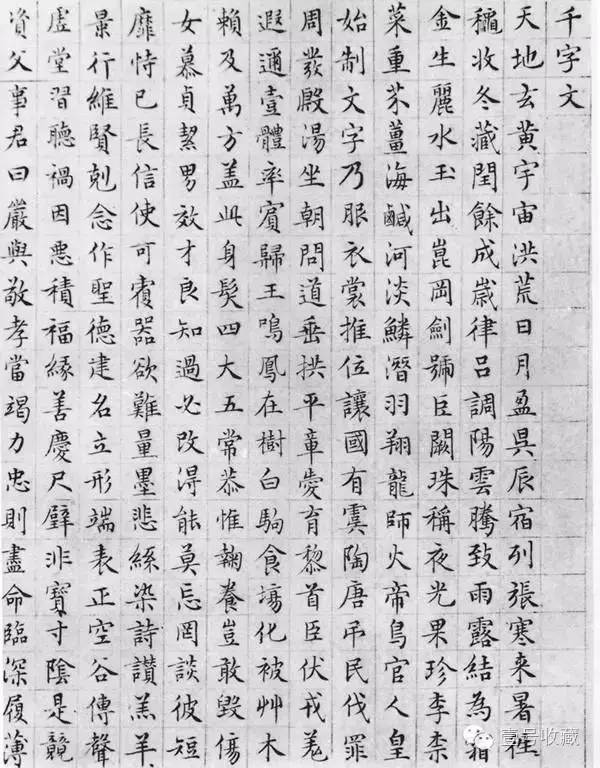 千字文
天地玄黄宇宙洪荒日月盈昃辰宿列張寒来暑往
穐收冬藏閏餘成嵗律吕調陽雲騰致雨露結為霜
金生麗水玉出崑岡劍號巨闕珠稱夜光果珍李柰
菜重芥薑海鹹河淡鱗潛羽翔龍師火帝鳥官人皇
始制文字乃服衣裳推位讓國有虞陶唐吊民伐罪
周發殷湯坐朝問道垂拱平章愛育黎首臣伏戎羌
遐邇壹體率賓歸王鳴鳳在樹白駒食場化被艸木
賴及萬方盖此身髮四大五常恭惟鞠養豈敢毀傷
女慕貞潔男效才良知過必改得能莫忘罔談彼短
靡恃已長信使可覆器欲難量墨悲絲染詩讃羔羊
景行維賢剋念作聖德建名立形端表正空谷傳聲
虛堂習聽禍因惡積福緣善慶尺璧非寶寸陰是競
資父事君曰嚴與敬孝當竭力忠則盡命臨深履薄
壹号收藏